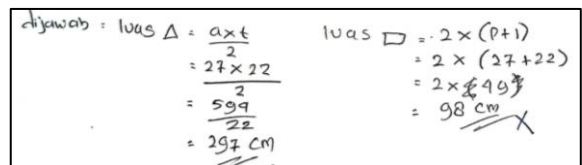 dijawab = luas △ = a x t / 2
= 27 x 22 / 2
= 594 / 22
= 297 cm
luas □ = 2 x (p+l)
= 2 x (27+22)
= 2 x {49}
= 98 cm